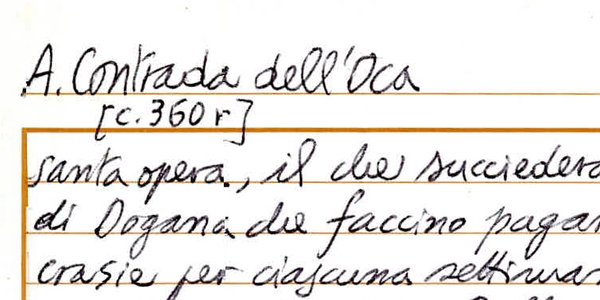 A. Contrada dell'Oca
[c. 360 r]
santa opera, il che succiedera
di Dogana che faccino pagar
crasie per ciascuna settiman